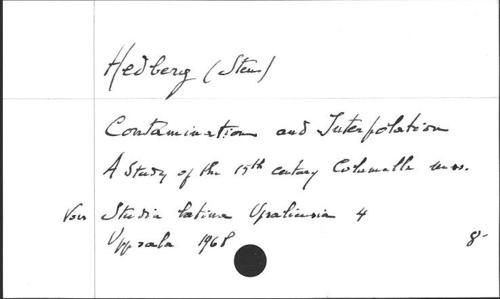 Hedberg (Sten)
Contamination and Interpolation
A Study of the 15th century Columella mss.
Voir Studia latina Upsaliensia 4
Uppsala 1968 8-